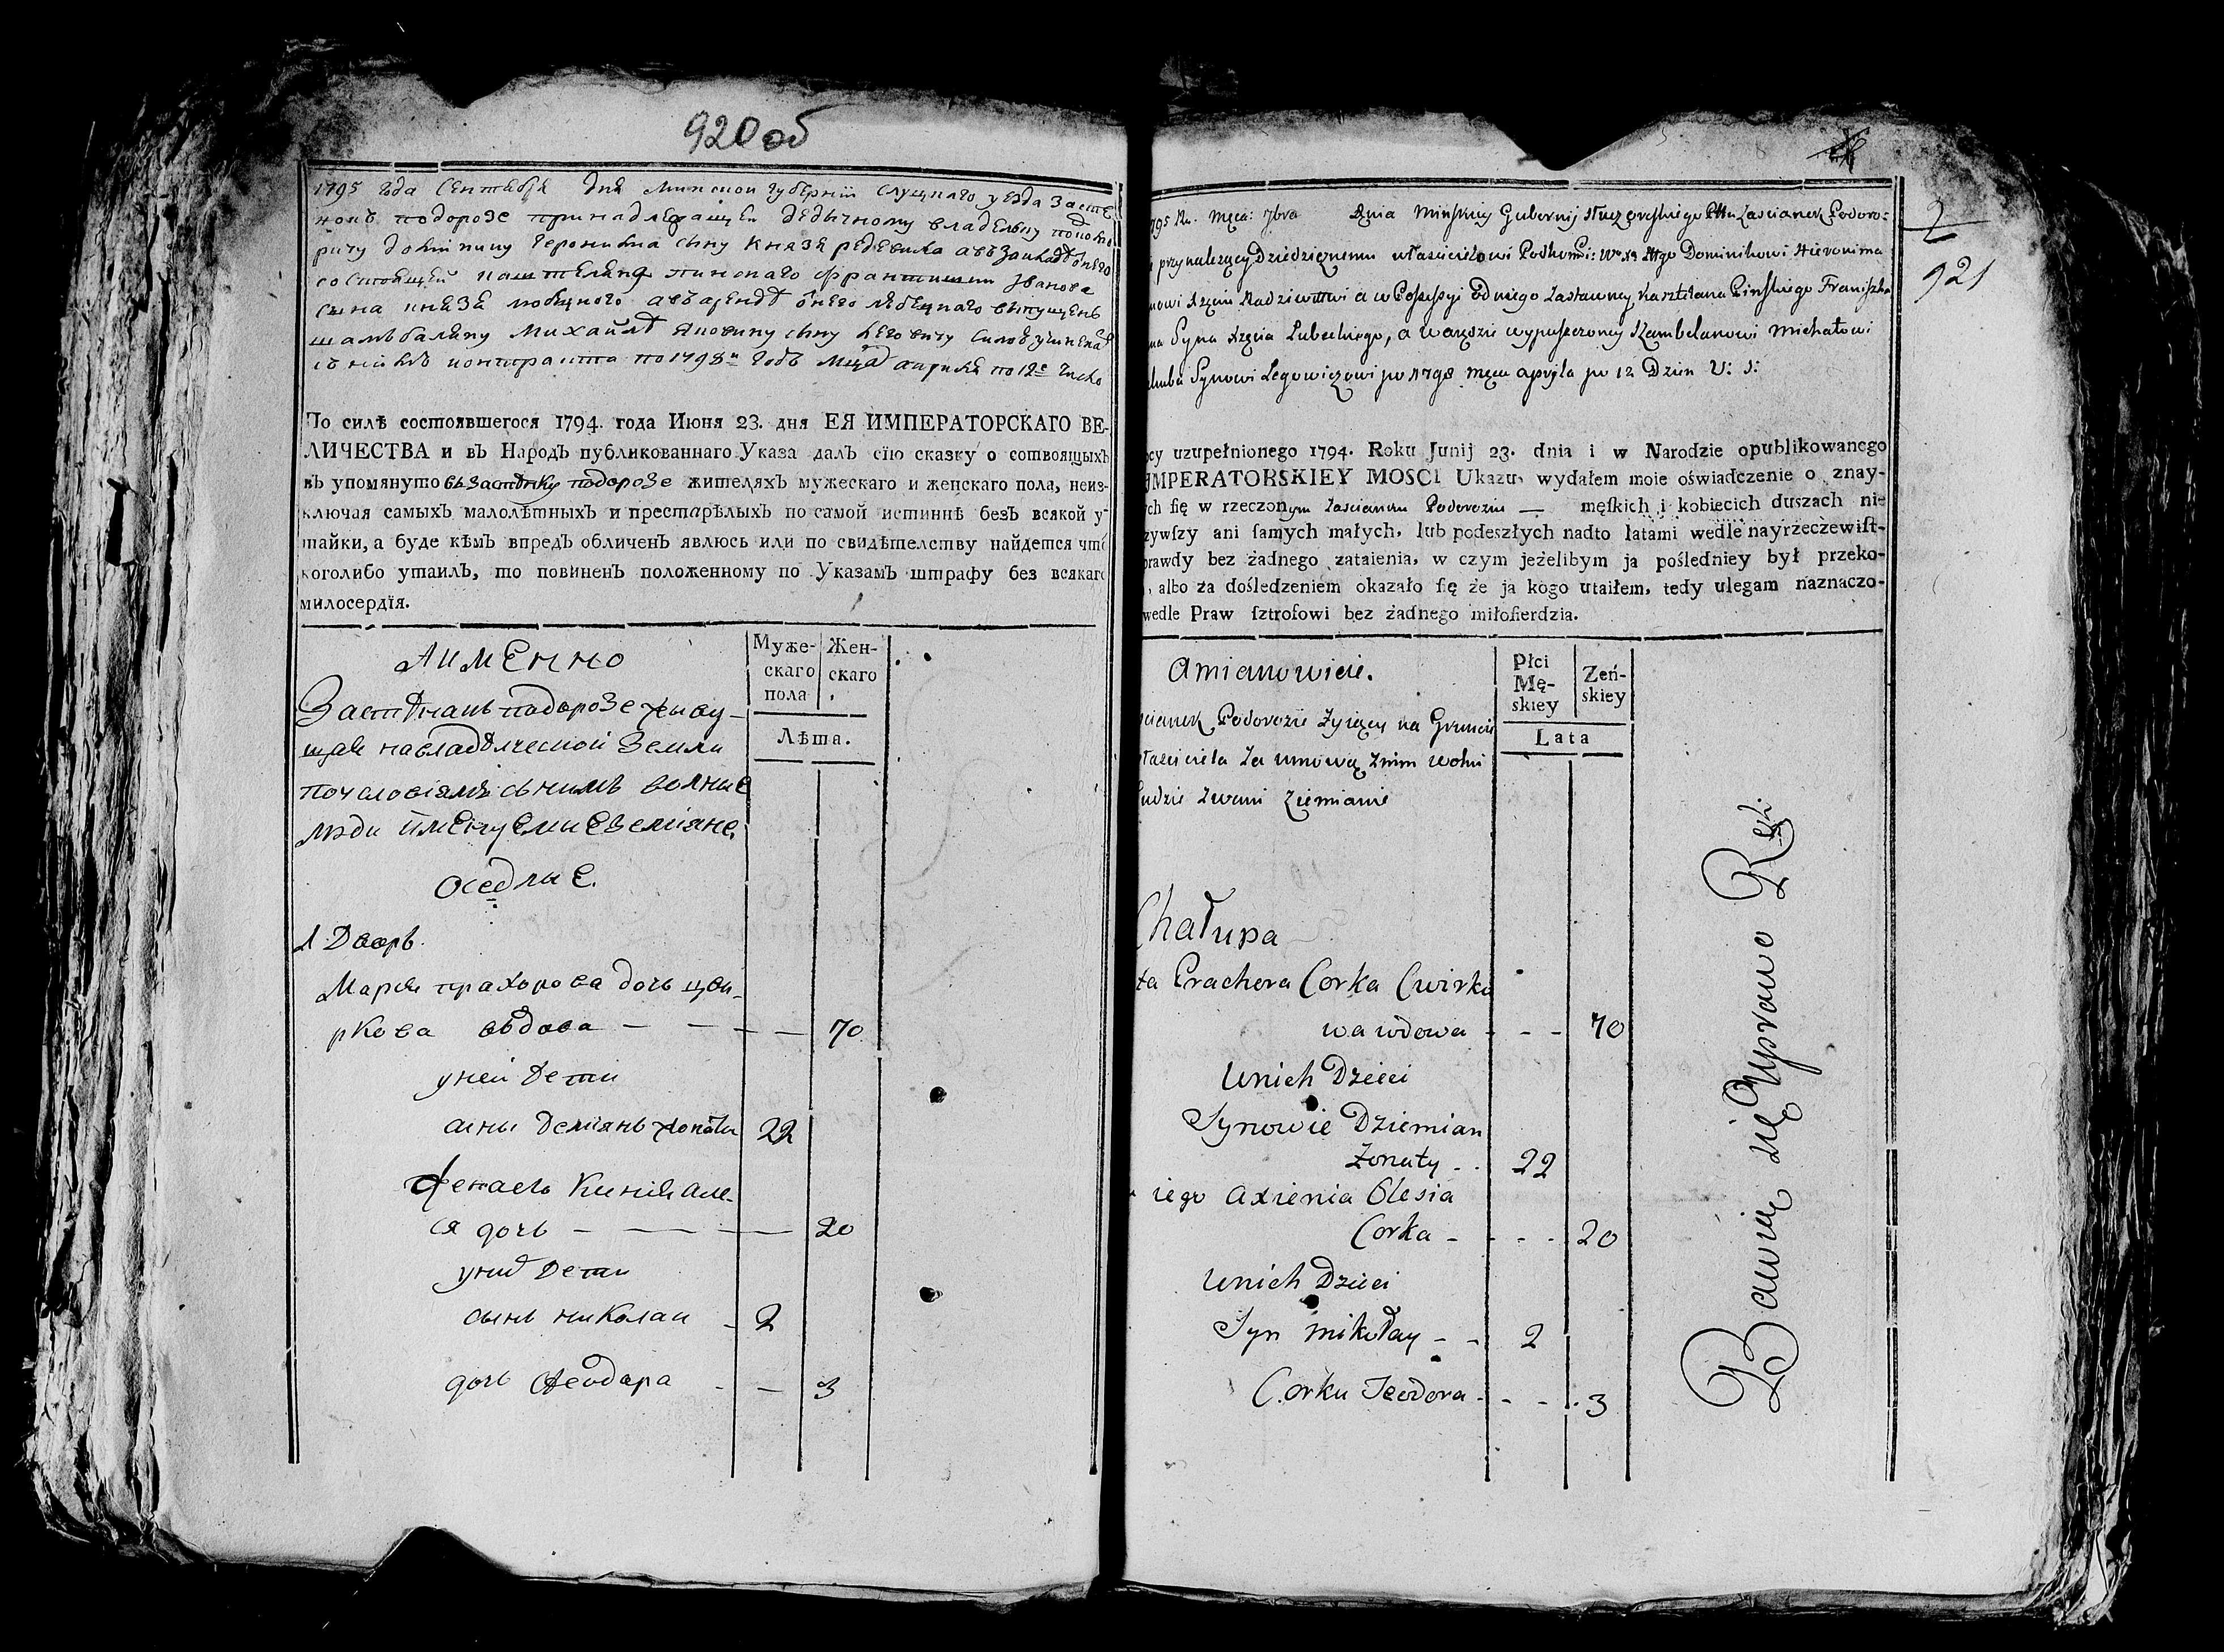 920 об
1795 года Сентября дня Минской губернїи Слуцкаго уезда Застѣ
нокъ подорозе принадлежащей дедычному владельцу подкомо
рычу доминику героним̃а сыну Князя редевила а въ Закладѣ онего
состоящей каштеляна пинскаго францишки Иванова
сына князя любецкого а въ арендѣ онего любецкаго выпущенъ
шамъбаляну Михайлѣ сыну Легович̃у
съ нимъ контракта по 1798 годъ Мца априля по 12е число
По силѣ состоявшегося 1794. года Июня 23. дня ЕЯ ИМПЕРАТОРСКАГО ВЕ-
ЛИЧЕСТВА и въ Народъ публикованнаго Указа далъ сїю сказку о сотвоящыхъ
въ упомянуто въ застѣнку подорозе жителяхъ мужескаго и женскаго пола, неиз-
ключая самыхъ малолѣтныхъ и престарѣлыхъ по самой истиннѣ безъ всякой у
тайки, а буде кѣмъ впредъ обличенъ явлюсь или по свидѣтелству найдется что
коголибо утаилъ, то повиненъ положенному по Указамъ штрафу без всякаго
милосердїя.
Аименно
Муже-
скаго
пола
Жен-
скаго
Лѣта.
Застѣнакъ подорозе живу-
щая навладѣлческой Земли
поусловіямъ снимъ волные
люди именуемые Земляне,
оседлые.
1 Дворъ.
Марья прахорова дочь цви-
ркова вдова — — — — 70
уней Дети
сыны Демянъ жонаты 22
Жена его Кинія Але-
ся дочь — — — 20
унихъ Дети
сынъ николаи - 2
дочь Феодара - — 3
921
1795 Ru. Męca: 7bra Dnia Minskiey Gubernij Słuczoreskiego Pttu Zascianek Podoro:
przynalezący Dziedzicznemu własścicielowi Podkom: Dominikowi Hieronima
nowi Xzęciu Radziwiłłowi a w Possessyi od niego Zastawney Kasztelana Pinskiego Franiszka
na Syna Xzęcia Lubeckiego, a w arędzie wypuszczoney Szambelanowi Michałowi
Synowi Legowiczowi po 1798 męca apryla po 12 Dzien V: S:
ocy uzupełnionego 1794. Roku Junij 23. dnia i w Narodzie opublikowanego
IMPERATORSKIEY MOSCI Ukazu, wydałem moie oświadczenie o znay-
ych ſię w rzeczonym Zascianku Podorozie — męſkich i kobiecich duszach nie
zywſzy ani ſamych małych, lub podeszłych nadto latami wedle nayrzeczewiſt-
prawdy bez żadnego zataienia, w czym jeżelibym ja poſledniey był przeko-
, albo za doſledzeniem okazało ſię że ja kogo utaiłem, tedy ulegam naznaczo-
wedle Praw ſztrofowi bez żadnego miłoſierdzia.
Amianowicie.
Płci
Mę-
skiey
Zeń-
skiey
Lata
scianek Podorozie Zyiący na Gruncie
własciciela Za umową Znim wolni
Ludzie Zwani Ziemianie
Chałupa
ta Prachora Corka Cwirko
wa wdowa - - - 70
Unich Dzieci
Synowie Dziemian
Zonaty - . 22
iego Axienia Olesia
Corka - - - - 20
Unich Dzieci
Syn mikołay - - 2
Corka Teodora - - - . 3
Bawią się Uprawo Roli.